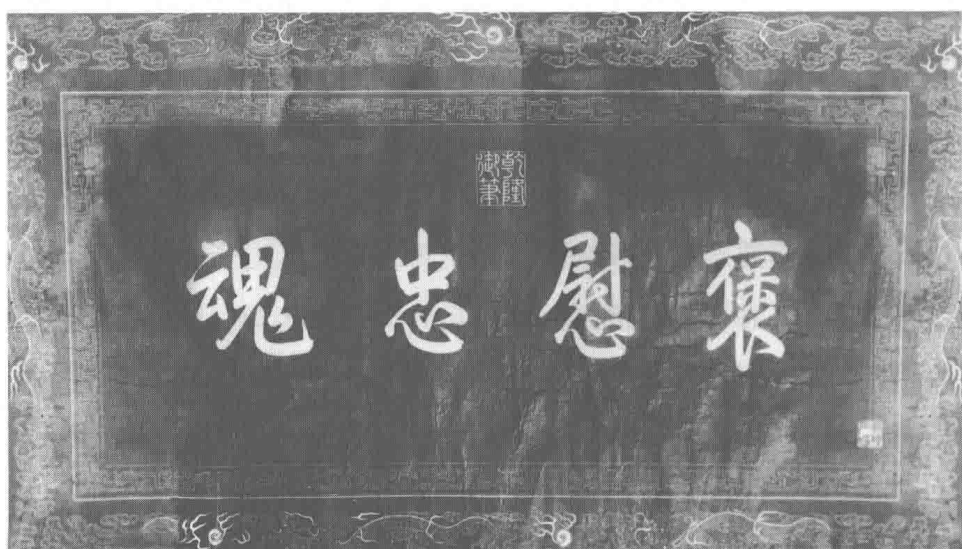 乾隆御筆
褒慰忠魂